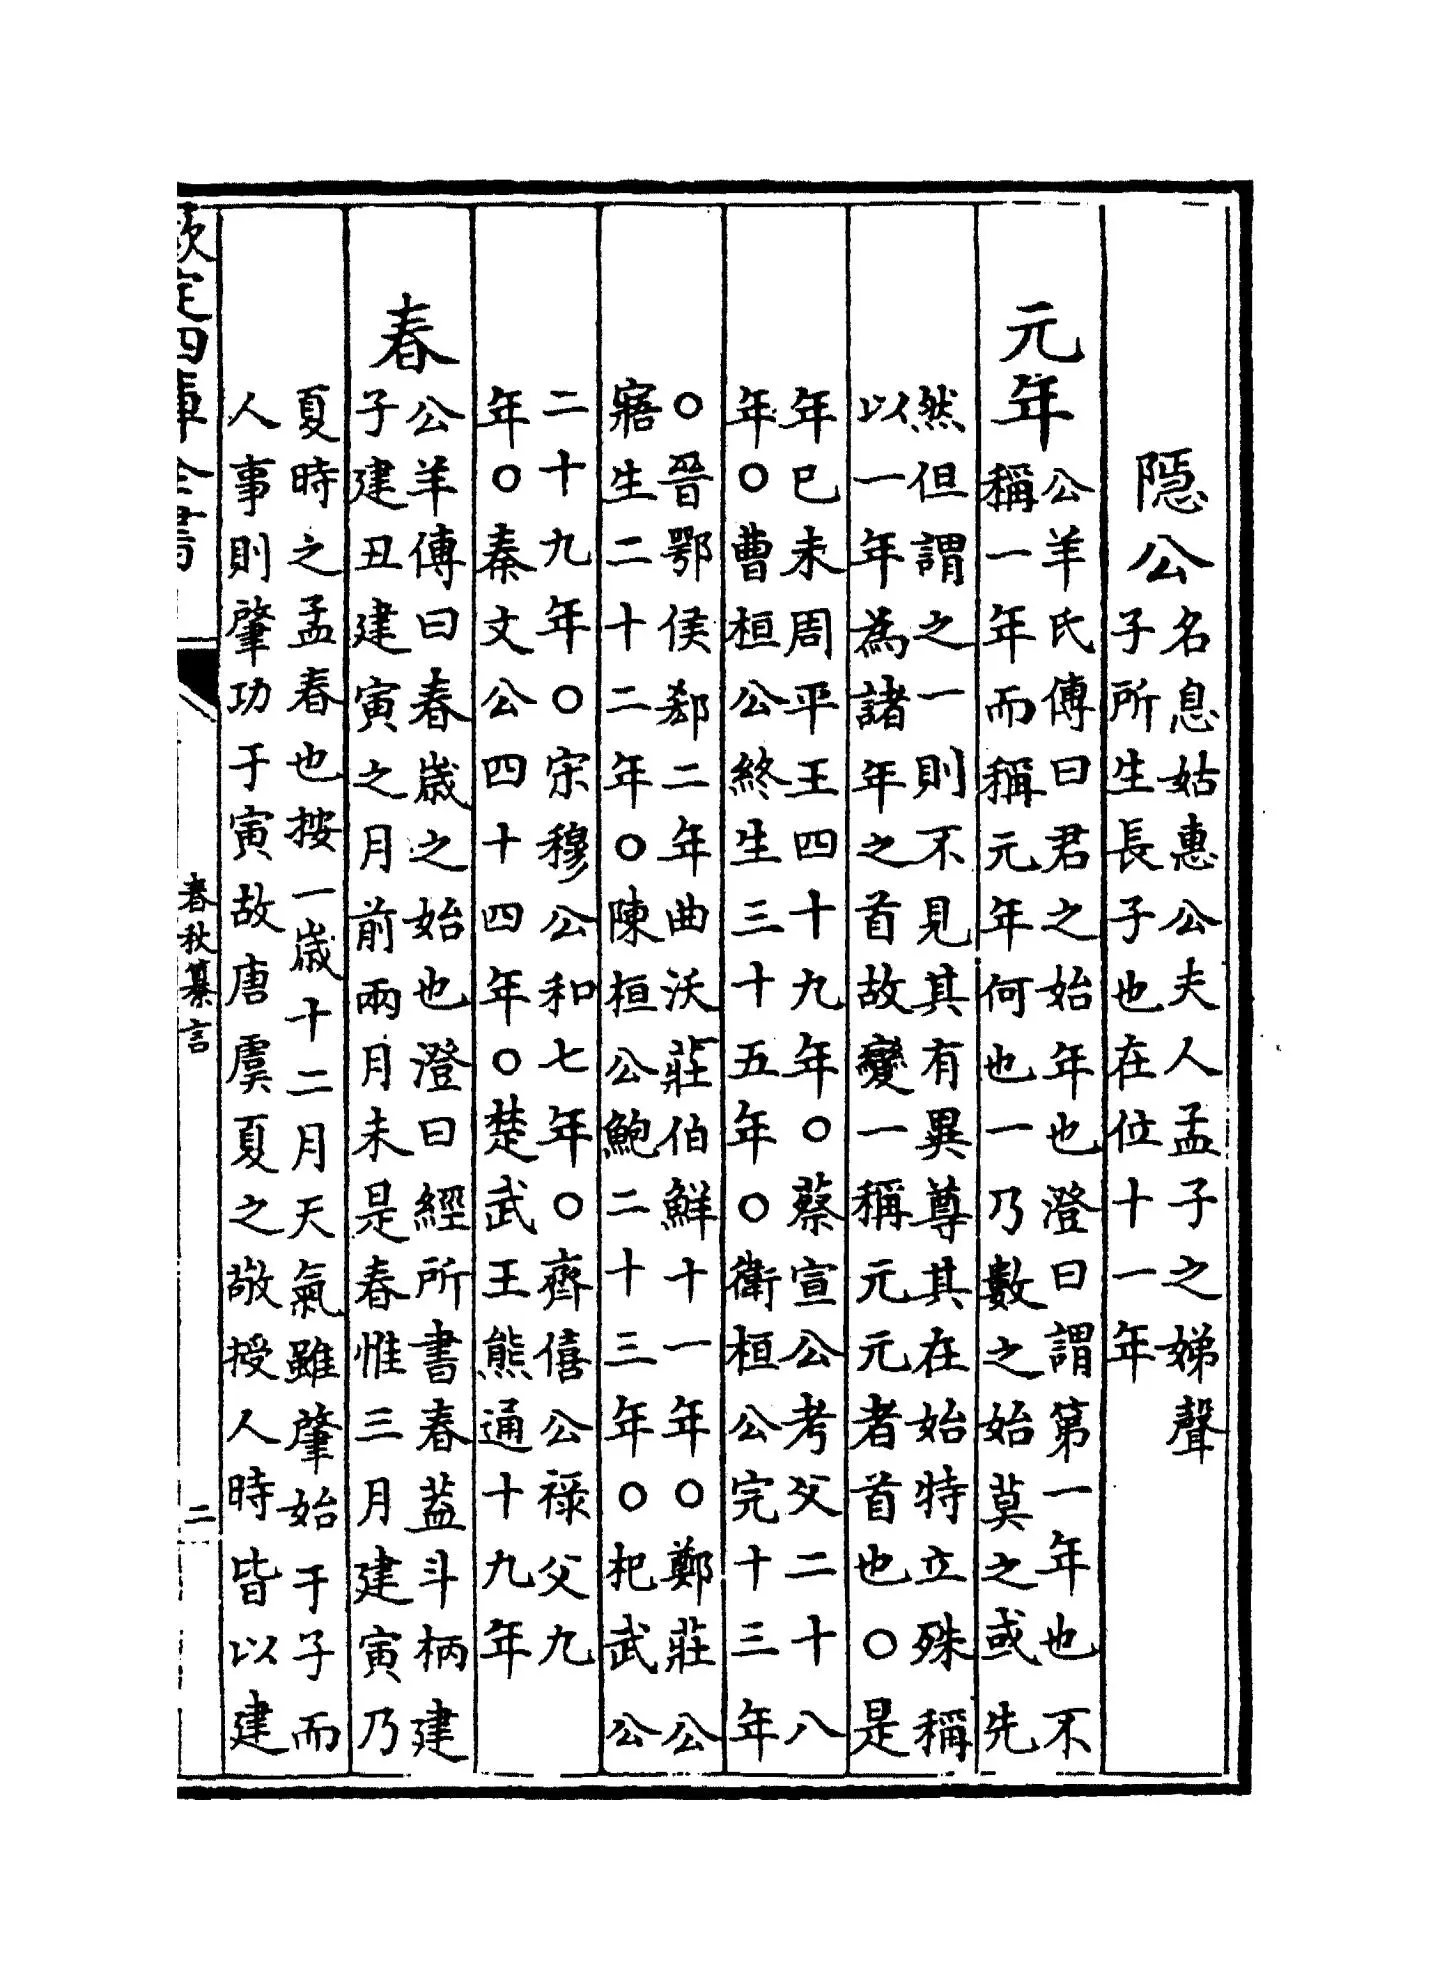 隱公名息姑惠公夫人孟子之娣聲
子所生長子也在位十一年
元年公羊氏傳曰君之始年也澄曰謂第一年也不
稱一年而稱元年何也一乃數之始莫之或先
然但謂之一則不見其有異尊其在始特立殊稱
以一年為諸年之首故變一稱元元者首也○是
年巳未周平王四十九年○蔡宣公考父二十八
年○曹桓公終生三十五年○衛桓公完十三年
○晉鄂侯郄二年曲沃莊伯鮮十一年○鄭莊公
寤生二十二年○陳桓公鮑二十三年○杞武公
二十九年○宋穆公和七年○齊僖公祿父九
年○秦文公四十四年○楚武王熊通十九年
春公羊傳曰春歲之始也澄曰經所書春葢斗柄建
子建丑建寅之月前兩月未是春惟三月建寅乃
夏時之孟春也按一歲十二月天氣雖肇始于子而
人事則肇功于寅故唐虞夏之敬授人時皆以建
欽定四庫全書
春秋纂言
二